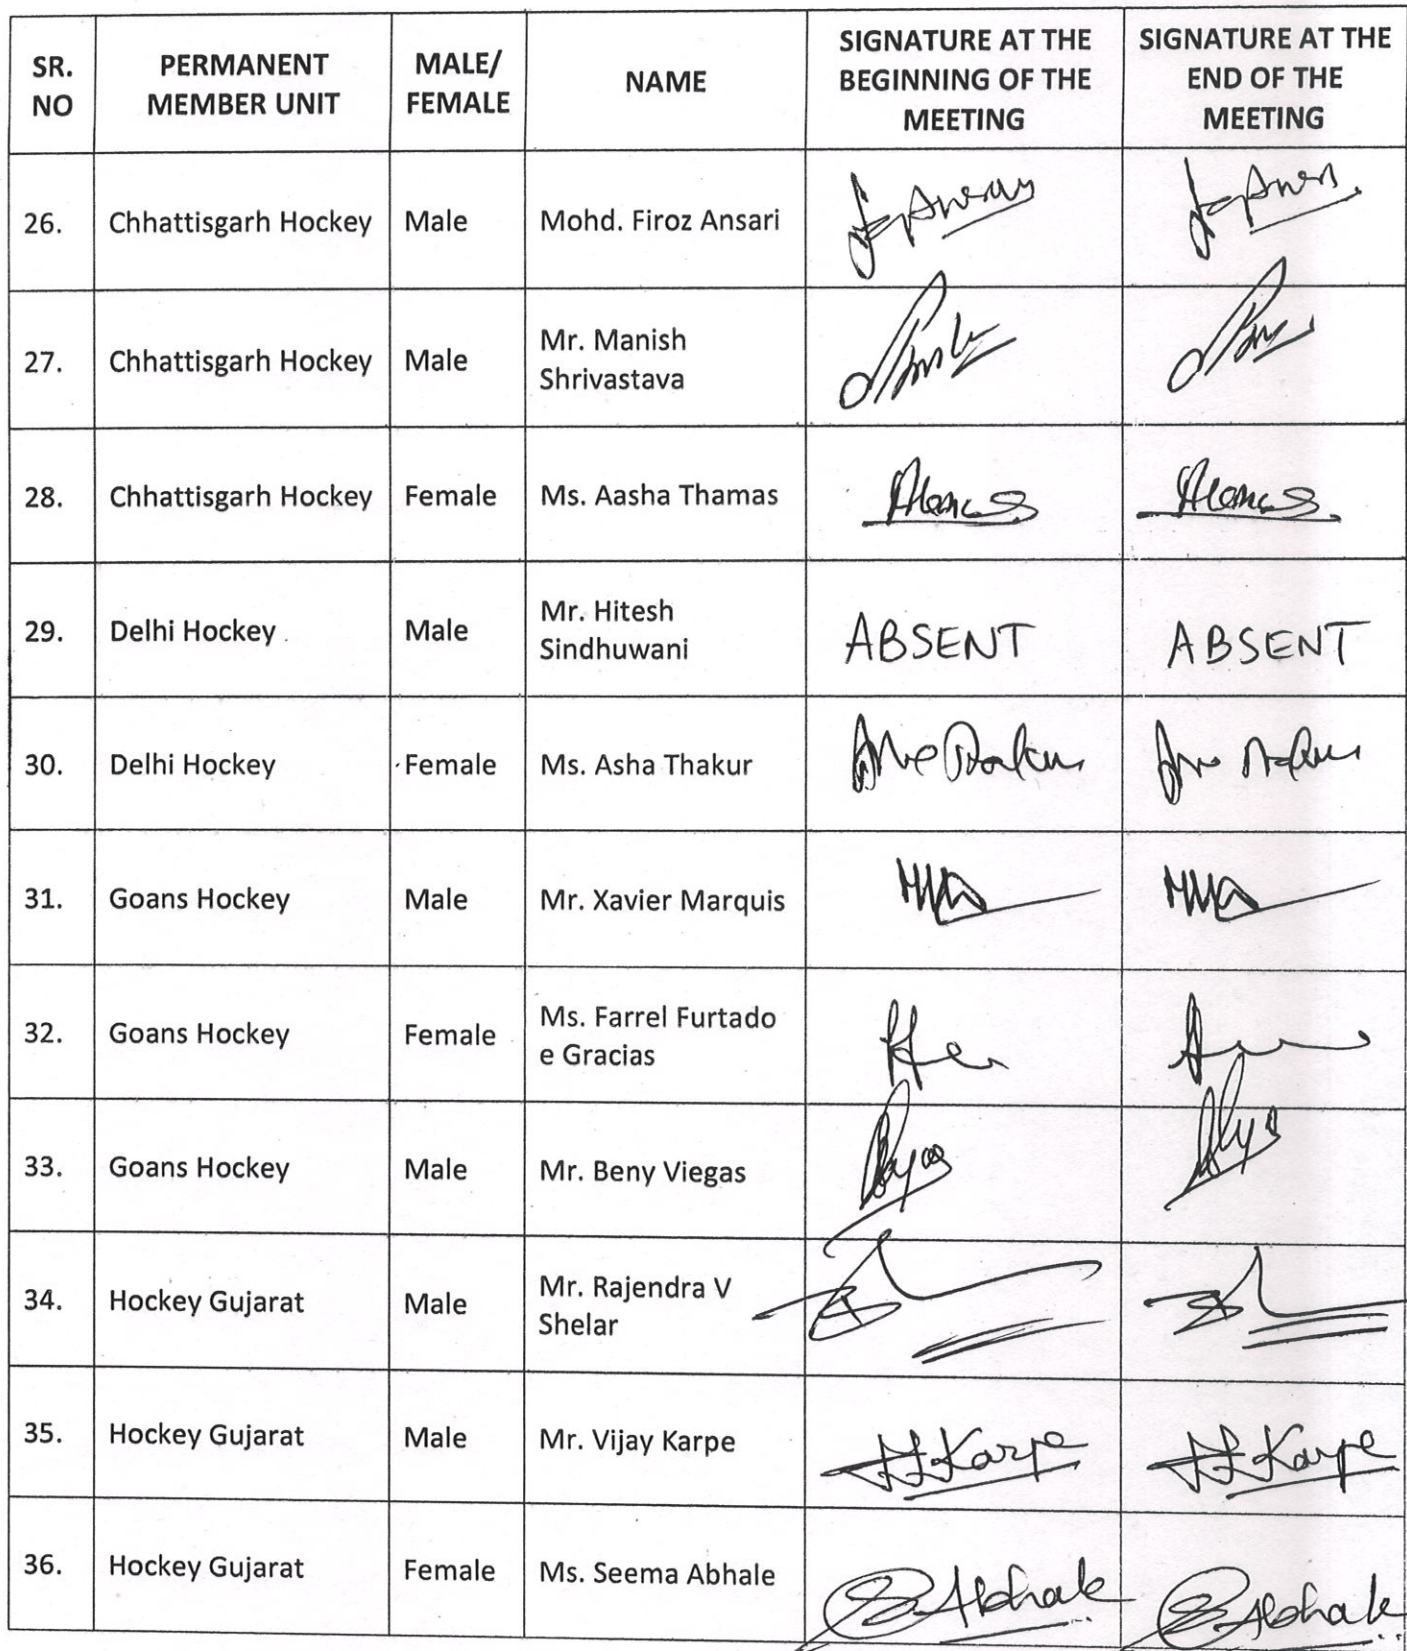 SR. NO PERMANENT MEMBER UNIT MALE/ FEMALE NAME SIGNATURE AT THE BEGINNING OF THE MEETING SIGNATURE AT THE END OF THE MEETING
26. Chhattisgarh Hockey Male Mohd. Firoz Ansari
27. Chhattisgarh Hockey Male Mr. Manish Shrivastava
28. Chhattisgarh Hockey Female Ms. Aasha Thamas
29. Delhi Hockey Male Mr. Hitesh Sindhuwani ABSENT ABSENT
30. Delhi Hockey Female Ms. Asha Thakur
31. Goans Hockey Male Mr. Xavier Marquis
32. Goans Hockey Female Ms. Farrel Furtado e Gracias
33. Goans Hockey Male Mr. Beny Viegas
34. Hockey Gujarat Male Mr. Rajendra V Shelar
35. Hockey Gujarat Male Mr. Vijay Karpe Karpe Karpe
36. Hockey Gujarat Female Ms. Seema Abhale Abhale Abhale